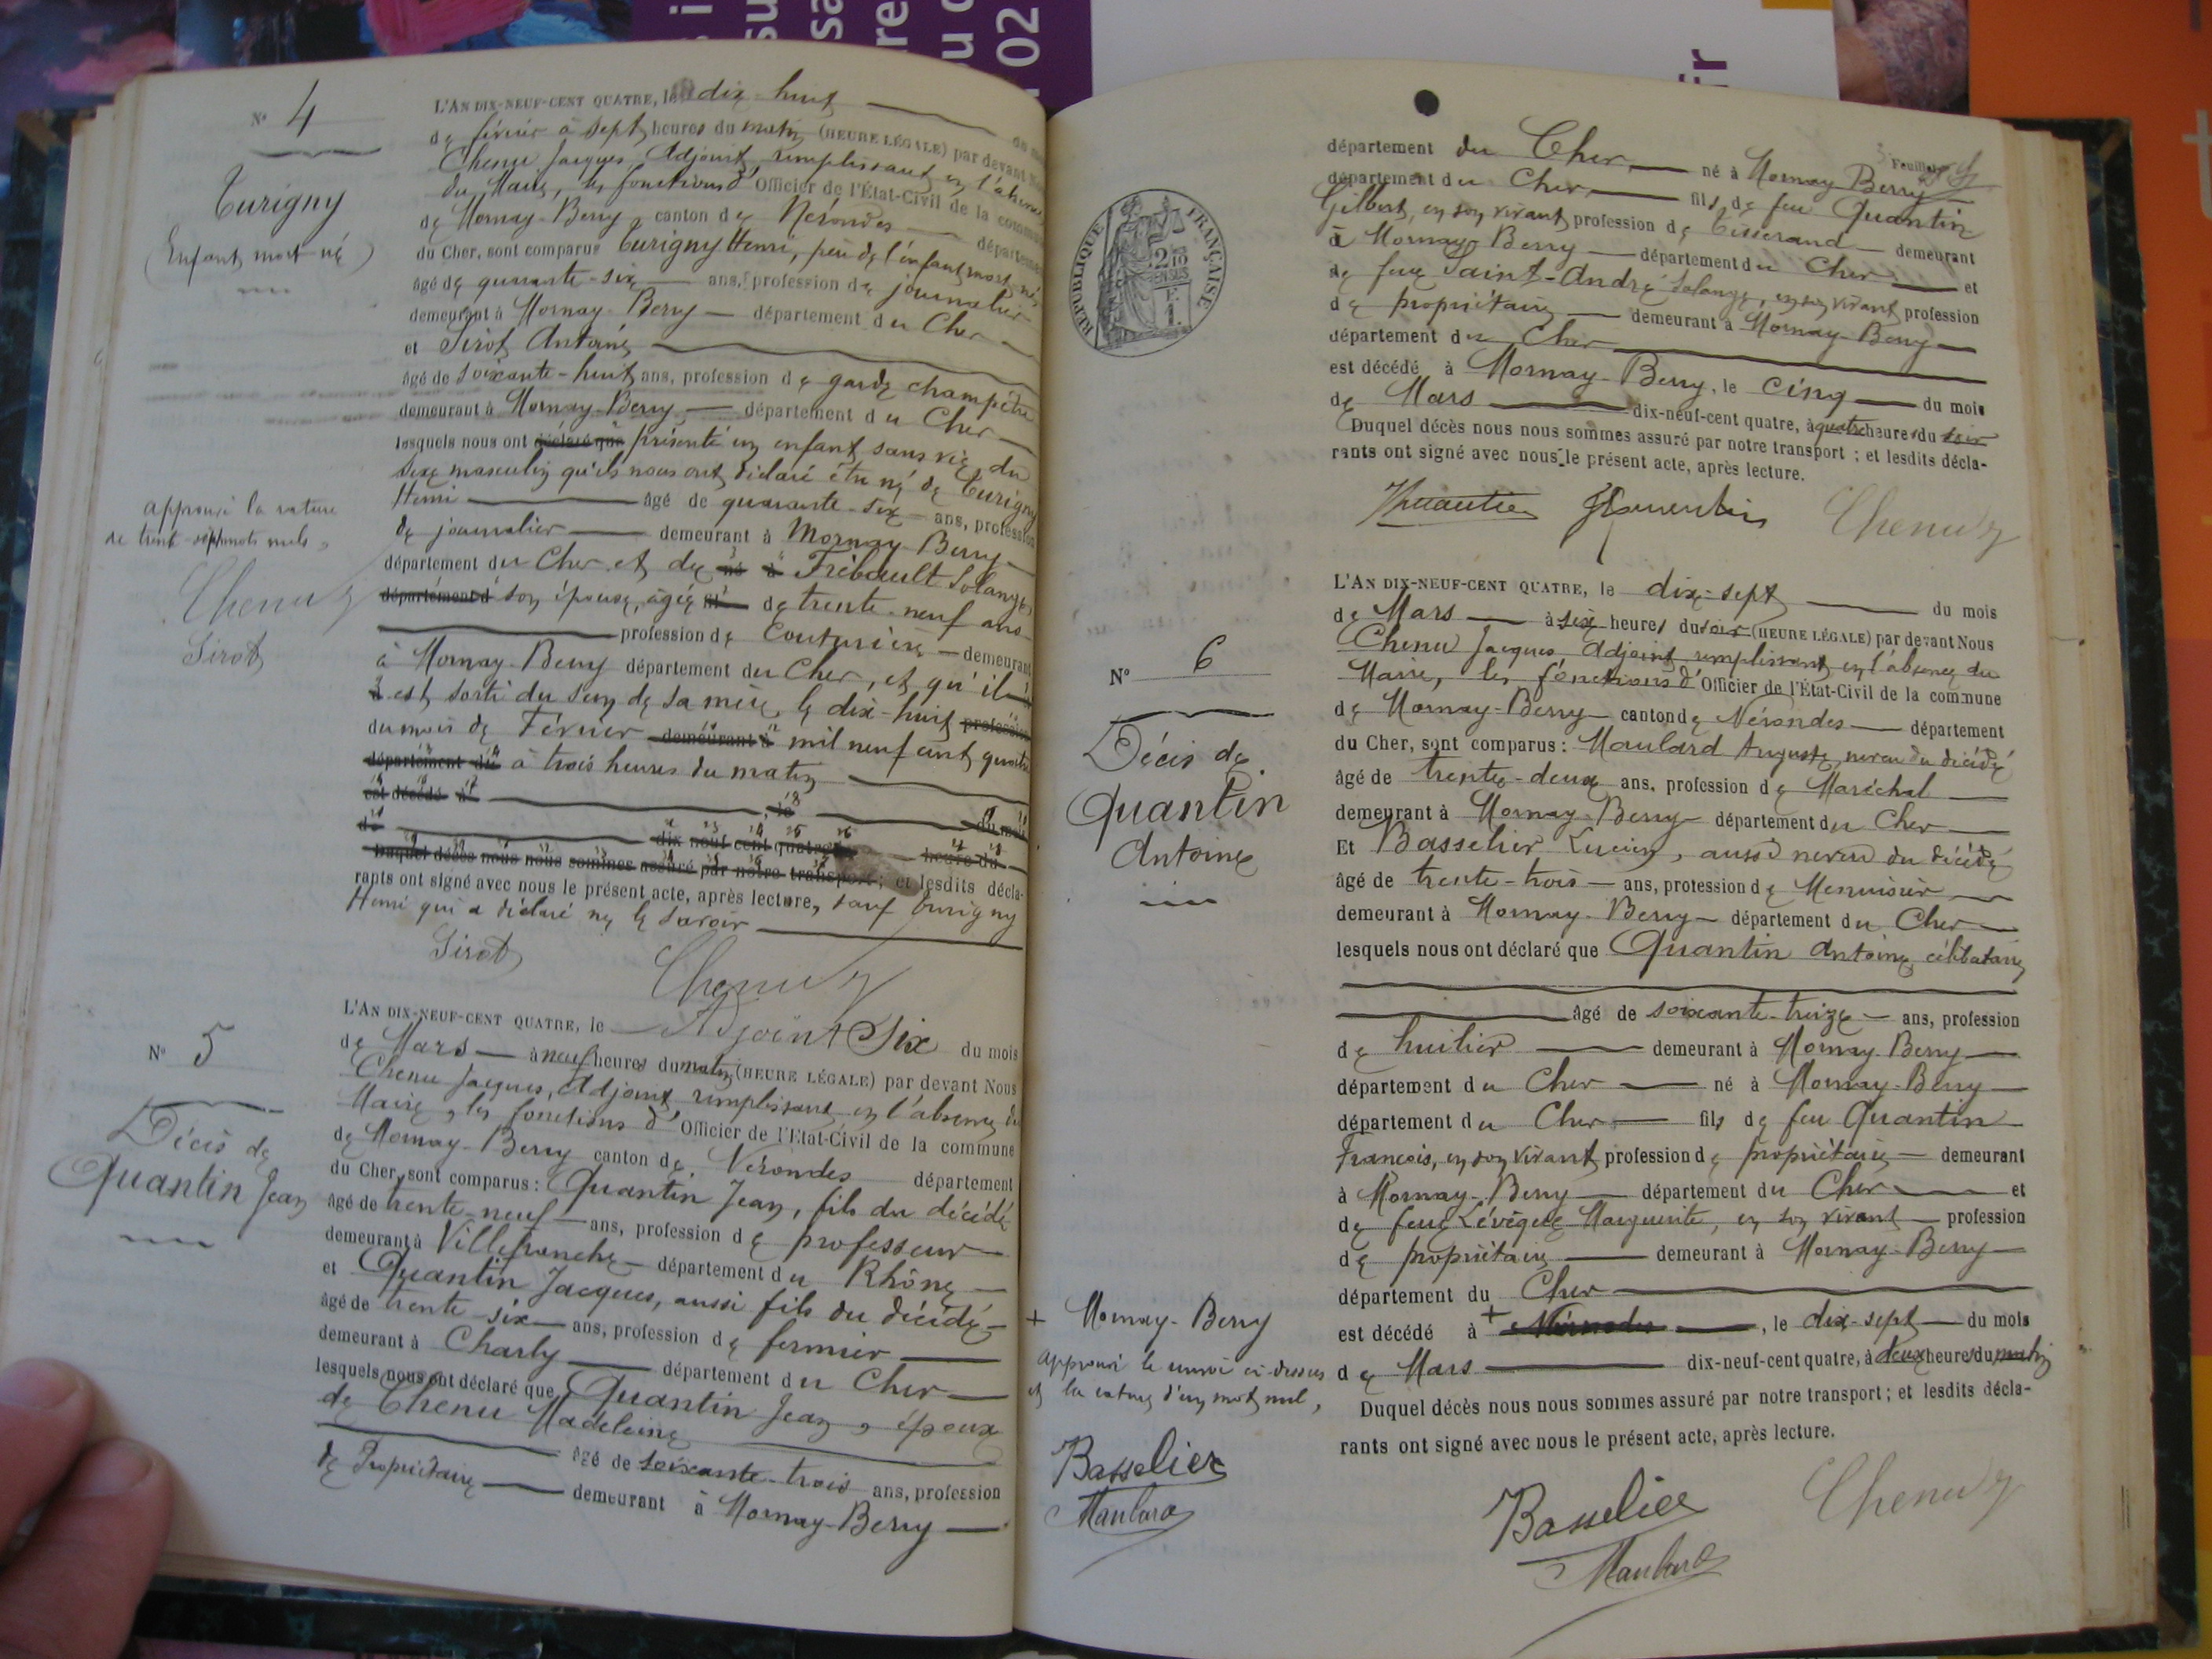 N° 4
Turigny
(Enfant mort-né)
L'AN DIX-NEUF-CENT QUATRE, le dix-huit du mois
de février à sept heures du matin (HEURE LÉGALE) par devant Nous
Chenu Jacques, Adjoint remplissant en l'absence
du Maire, les fonctions d'Officier de l'État-Civil de la commune
de Mornay-Berry, canton de Nérondes département
du Cher, sont comparus Turigny Henri, père de l'enfant mort-né,
âgé de quarante-six ans, profession de journalier
demeurant à Mornay-Berry département du Cher
et Sirot Antoine
âgé de soixante-huit ans, profession de garde champêtre
demeurant à Mornay-Berry département du Cher
lesquels nous ont déclaré que présenté un enfant sans vie, du
sexe masculin qu'ils nous ont déclaré être né de Turigny
Henri âgé de quarante-six ans, profession
de journalier demeurant à Mornay-Berry
département du Cher et de né à Frébault Solange
département d son épouse, âgée de trente-neuf ans
profession de Couturière demeurant
à Mornay-Berry département du Cher, et qu'il
est sorti du sein de sa mère le dix-huit profession
du mois de Février demeurant à mil neuf cent quatre
département du à trois heures du matin
est décédé à , le du mois
de dix-neuf-cent quatre heure du
Duquel décès nous nous sommes assuré par notre transport ; et lesdits décla-
rants ont signé avec nous le présent acte, après lecture, sauf Turigny
Henri qui a déclaré ne le savoir
Sirot Chenu
Adjoint
approuvé la rature
de trente-sept mots nuls
Chenu
Sirot
N° 5
Décès de
Quantin Jean
L'AN DIX-NEUF-CENT QUATRE, le Six du mois
de Mars à neuf heures du matin (HEURE LÉGALE) par devant Nous
Chenu Jacques, Adjoint remplissant en l'absence du
Maire, les fonctions d'Officier de l'État-Civil de la commune
de Mornay-Berry canton de Nérondes département
du Cher, sont comparus : Quantin Jean, fils du décédé
âgé de trente-neuf ans, profession de professeur
demeurant à Villefranche département du Rhône
et Quantin Jacques, aussi fils du décédé
âgé de trente-six ans, profession de fermier
demeurant à Charly département du Cher
lesquels nous ont déclaré que Quantin Jean, époux
de Chenu Madeleine
âgé de soixante-trois ans, profession
de Propriétaire demeurant à Mornay-Berry
Feuillet
département du Cher né à Mornay-Berry
département du Cher fils de feu Quantin
Gilbert, en son vivant profession de Tisserand demeurant
à Mornay-Berry département du Cher et
de feue Saint-André Solange, en son vivant profession
de propriétaire demeurant à Mornay-Berry
département du Cher
est décédé à Mornay-Berry, le cinq du mois
de Mars dix-neuf-cent quatre, à quatre heures du soir
Duquel décès nous nous sommes assuré par notre transport ; et lesdits décla-
rants ont signé avec nous le présent acte, après lecture.
Quantin Chenu
RÉPUBLIQUE FRANÇAISE
2/10 EN SUS
F. 1.
N° 6
Décès de
Quantin
Antoine
L'AN DIX-NEUF-CENT QUATRE, le dix-sept du mois
de Mars à six heures du soir (HEURE LÉGALE) par devant Nous
Chenu Jacques Adjoint remplissant en l'absence du
Maire, les fonctions d'Officier de l'État-Civil de la commune
de Mornay-Berry canton de Nérondes département
du Cher, sont comparus : Maulard Auguste, neveu du décédé
âgé de trente-deux ans, profession de Maréchal
demeurant à Mornay-Berry département du Cher
Et Basselier Lucien, aussi neveu du décédé
âgé de trente-trois ans, profession de Menuisier
demeurant à Mornay-Berry département du Cher
lesquels nous ont déclaré que Quantin Antoine célibataire
âgé de soixante-treize ans, profession
de huilier demeurant à Mornay-Berry
département du Cher né à Mornay-Berry
département du Cher fils de feu Quantin
François, en son vivant profession de propriétaire demeurant
à Mornay-Berry département du Cher et
de feue Lévêque Marguerite, en son vivant profession
de propriétaire demeurant à Mornay-Berry
département du Cher
est décédé à + Nérondes, le dix-sept du mois
de Mars dix-neuf-cent quatre, à deux heures du matin
Duquel décès nous nous sommes assuré par notre transport ; et lesdits décla-
rants ont signé avec nous le présent acte, après lecture.
Basselier Chenu
Maulard
+ Mornay-Berry
approuvé le renvoi ci-dessus
et la rature d'un mot nul,
Basselier
Maulard